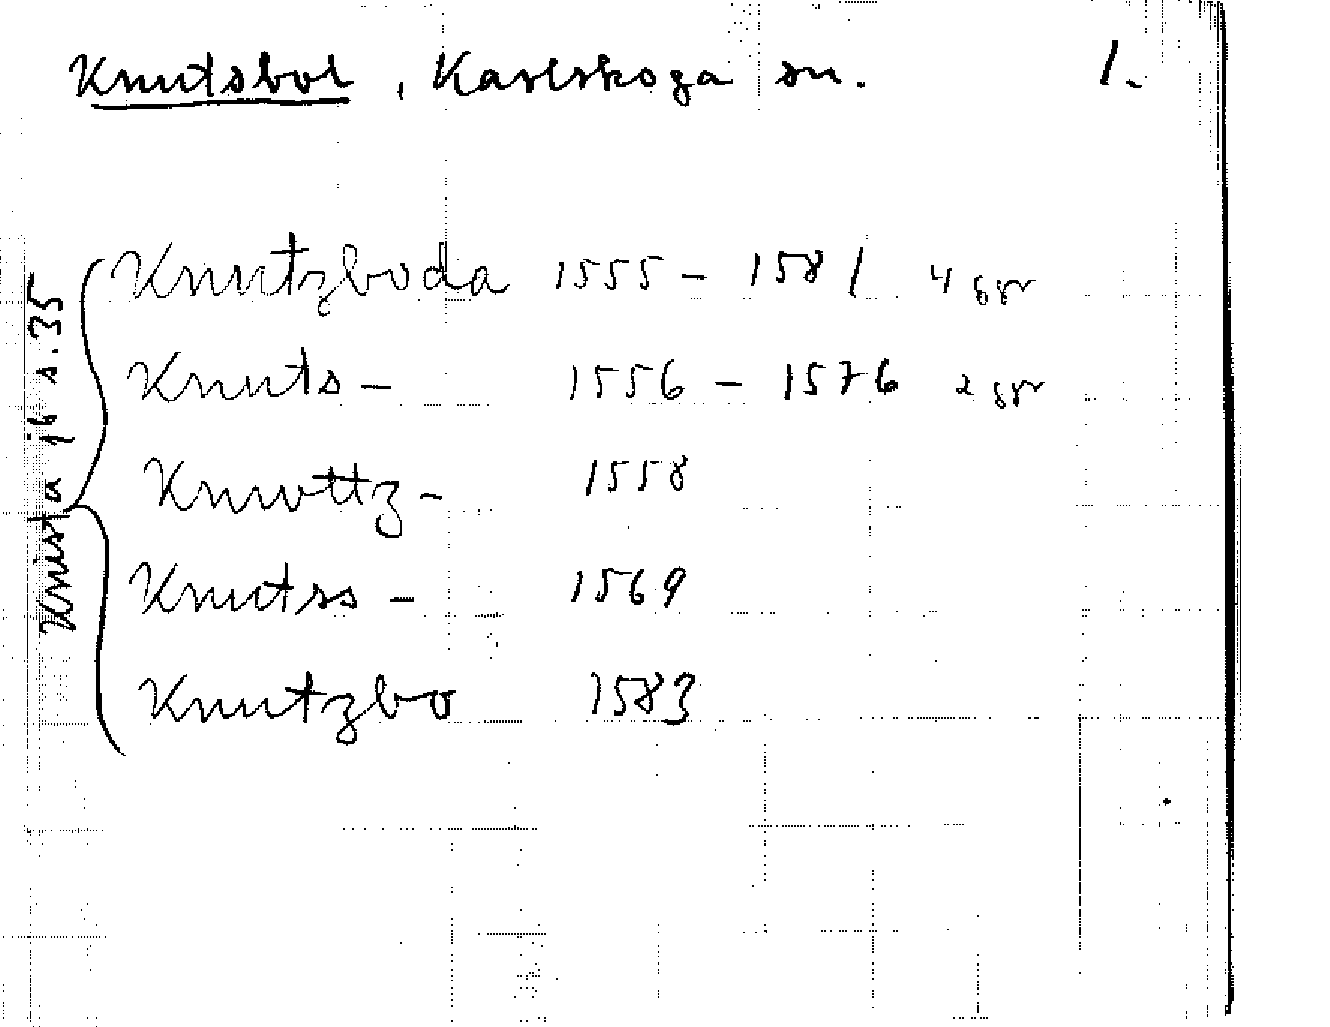 Knutsbol, Karlskoga sn. 1.
Knista jb s. 35
Knutzboda 1555 – 1581 4 ggr
Knuts – 1556 – 1576 2 ggr
Knwttz – 1558
Knutss – 1569
Knutzbo 1583